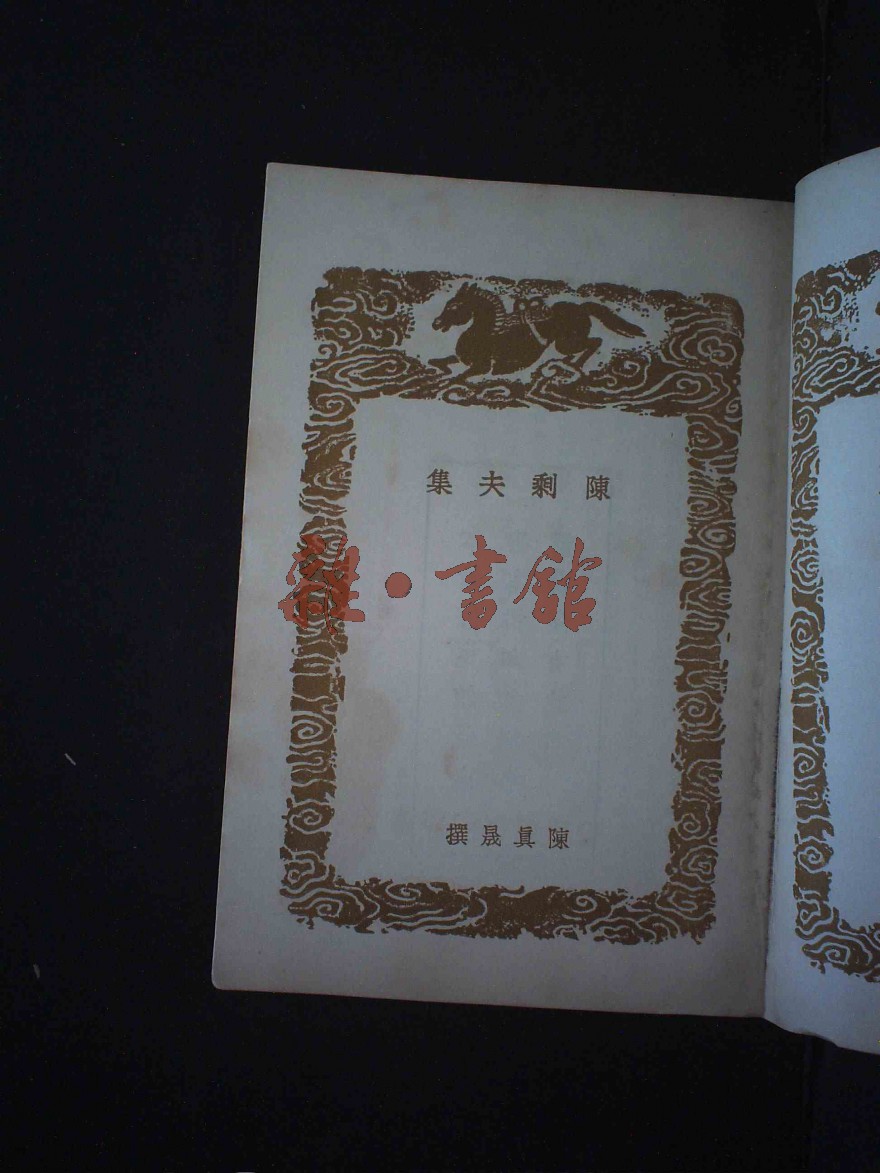 陳剩夫集
雜·書館
陳眞晟撰